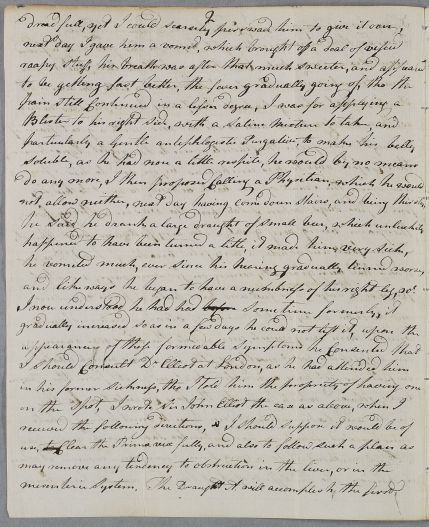 2
dreadfull, yet I could scarcely perswad him to give it over,
next day I gave him a vomit, which brought off a deal of
stuff, his breath was after that much sweeter, and appeard
to be getting fast better, the fever gradually going off, tho the
pain still continued in a lesser degree, I was for applying a
Blister to his right side, with a Saline mixture to take and
particularly a gentle antiphlogistic Purgative, to make his belly
soluble, as he had now a little respite, he would by no means
do any more, I then proposed Calling a Physician, which he would
not allow neither, next day having come down Stairs, and being thirsty
he said he drank a large draught of small beer, which unluckily
happened to have been turned a little, it made him very Sick,
he vomited much, ever since his hearing gradually turned worse,
and likeways he began to have a numbness of his right leg,
I now understand he had had some time formerly, it
gradually increased so as in a few days he could not lift it, upon the
appearance of these formidable Symptoms he Consented that
I should Consult Dr. Elliot at London, as he had attended him
in his former Sickness, tho I told him the propriety of having one
on the Spot, I wrote Sir John Elliot the case as above, when I
received the following directions, I should suppose it would be of
use, to clear the Primæ viæ fully, and also to follow such a plan as
may remove any tendency to obstruction in the liver, or in the
mesenteric System. The Draught A will accomplish the first,